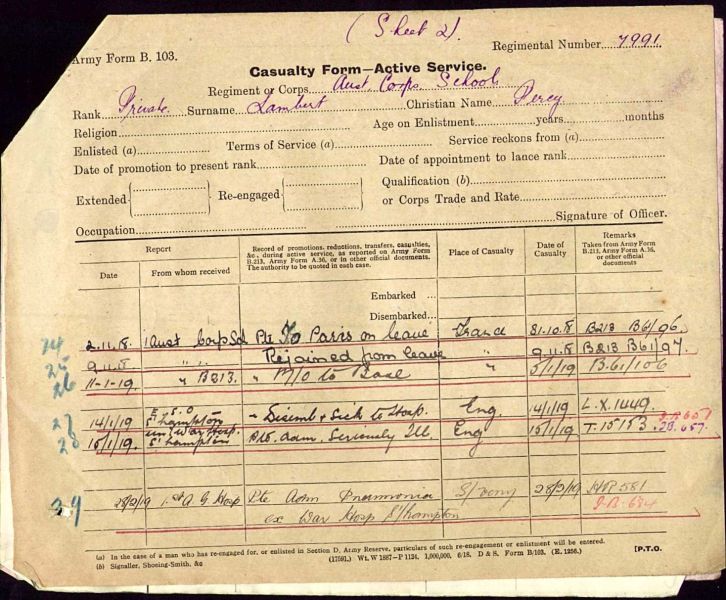 (Sheet 2).
Army Form B. 103.
Regimental Number 7991
Casualty Form—Active Service.
Regiment or Corps Aust Corps School
Rank Private Surname Lambert Christian Name Percy
Religion Age on Enlistment years months
Enlisted (a) Terms of Service (a) Service reckons from (a)
Date of promotion to present rank Date of appointment to lance rank
Extended Re-engaged Qualification (b)
or Corps Trade and Rate
Occupation Signature of Officer.
Report
Date From whom received
Record of promotions, reductions, transfers, casualties, &c., during active service, as reported on Army Form B.213, Army Form A.36, or in other official documents. The authority to be quoted in each case.
Place of Casualty
Date of Casualty
Remarks
Taken from Army Form B.213, Army Form A.36, or other official documents
Embarked
Disembarked
24 2.11.18. Aust Corp Scl Pte To Paris on leave France 31.10.18 B213 B61/96
25 9.11.18 " " " Rejoined from leave " 9.11.18 B213 B61/97
26 11-1-19 " B213. " M/O to Base " 5/1/19 B.61/106
27 14/1/19 S'hampton " Disemb & Sick to Hosp. Eng. 14/1/19 L.X.1449.
28 15/1/19 War Hosp. S'hampton Pte adm. Seriously Ill Eng 15/1/19 T.15153 657.
29 28/2/19 1st A G Hosp Pte Adm Pneumonia 28/2/19 581
ex War Hosp S/hampton
(a) In the case of a man who has re-engaged for, or enlisted in Section D, Army Reserve, particulars of such re-engagement or enlistment will be entered.
(b) Signaller, Shoeing-Smith, &c
(17591.) Wt. W 1887—P 1124. 1,000,000. 6/18. D & S. Form B/103. (E. 1256.)
[P.T.O.